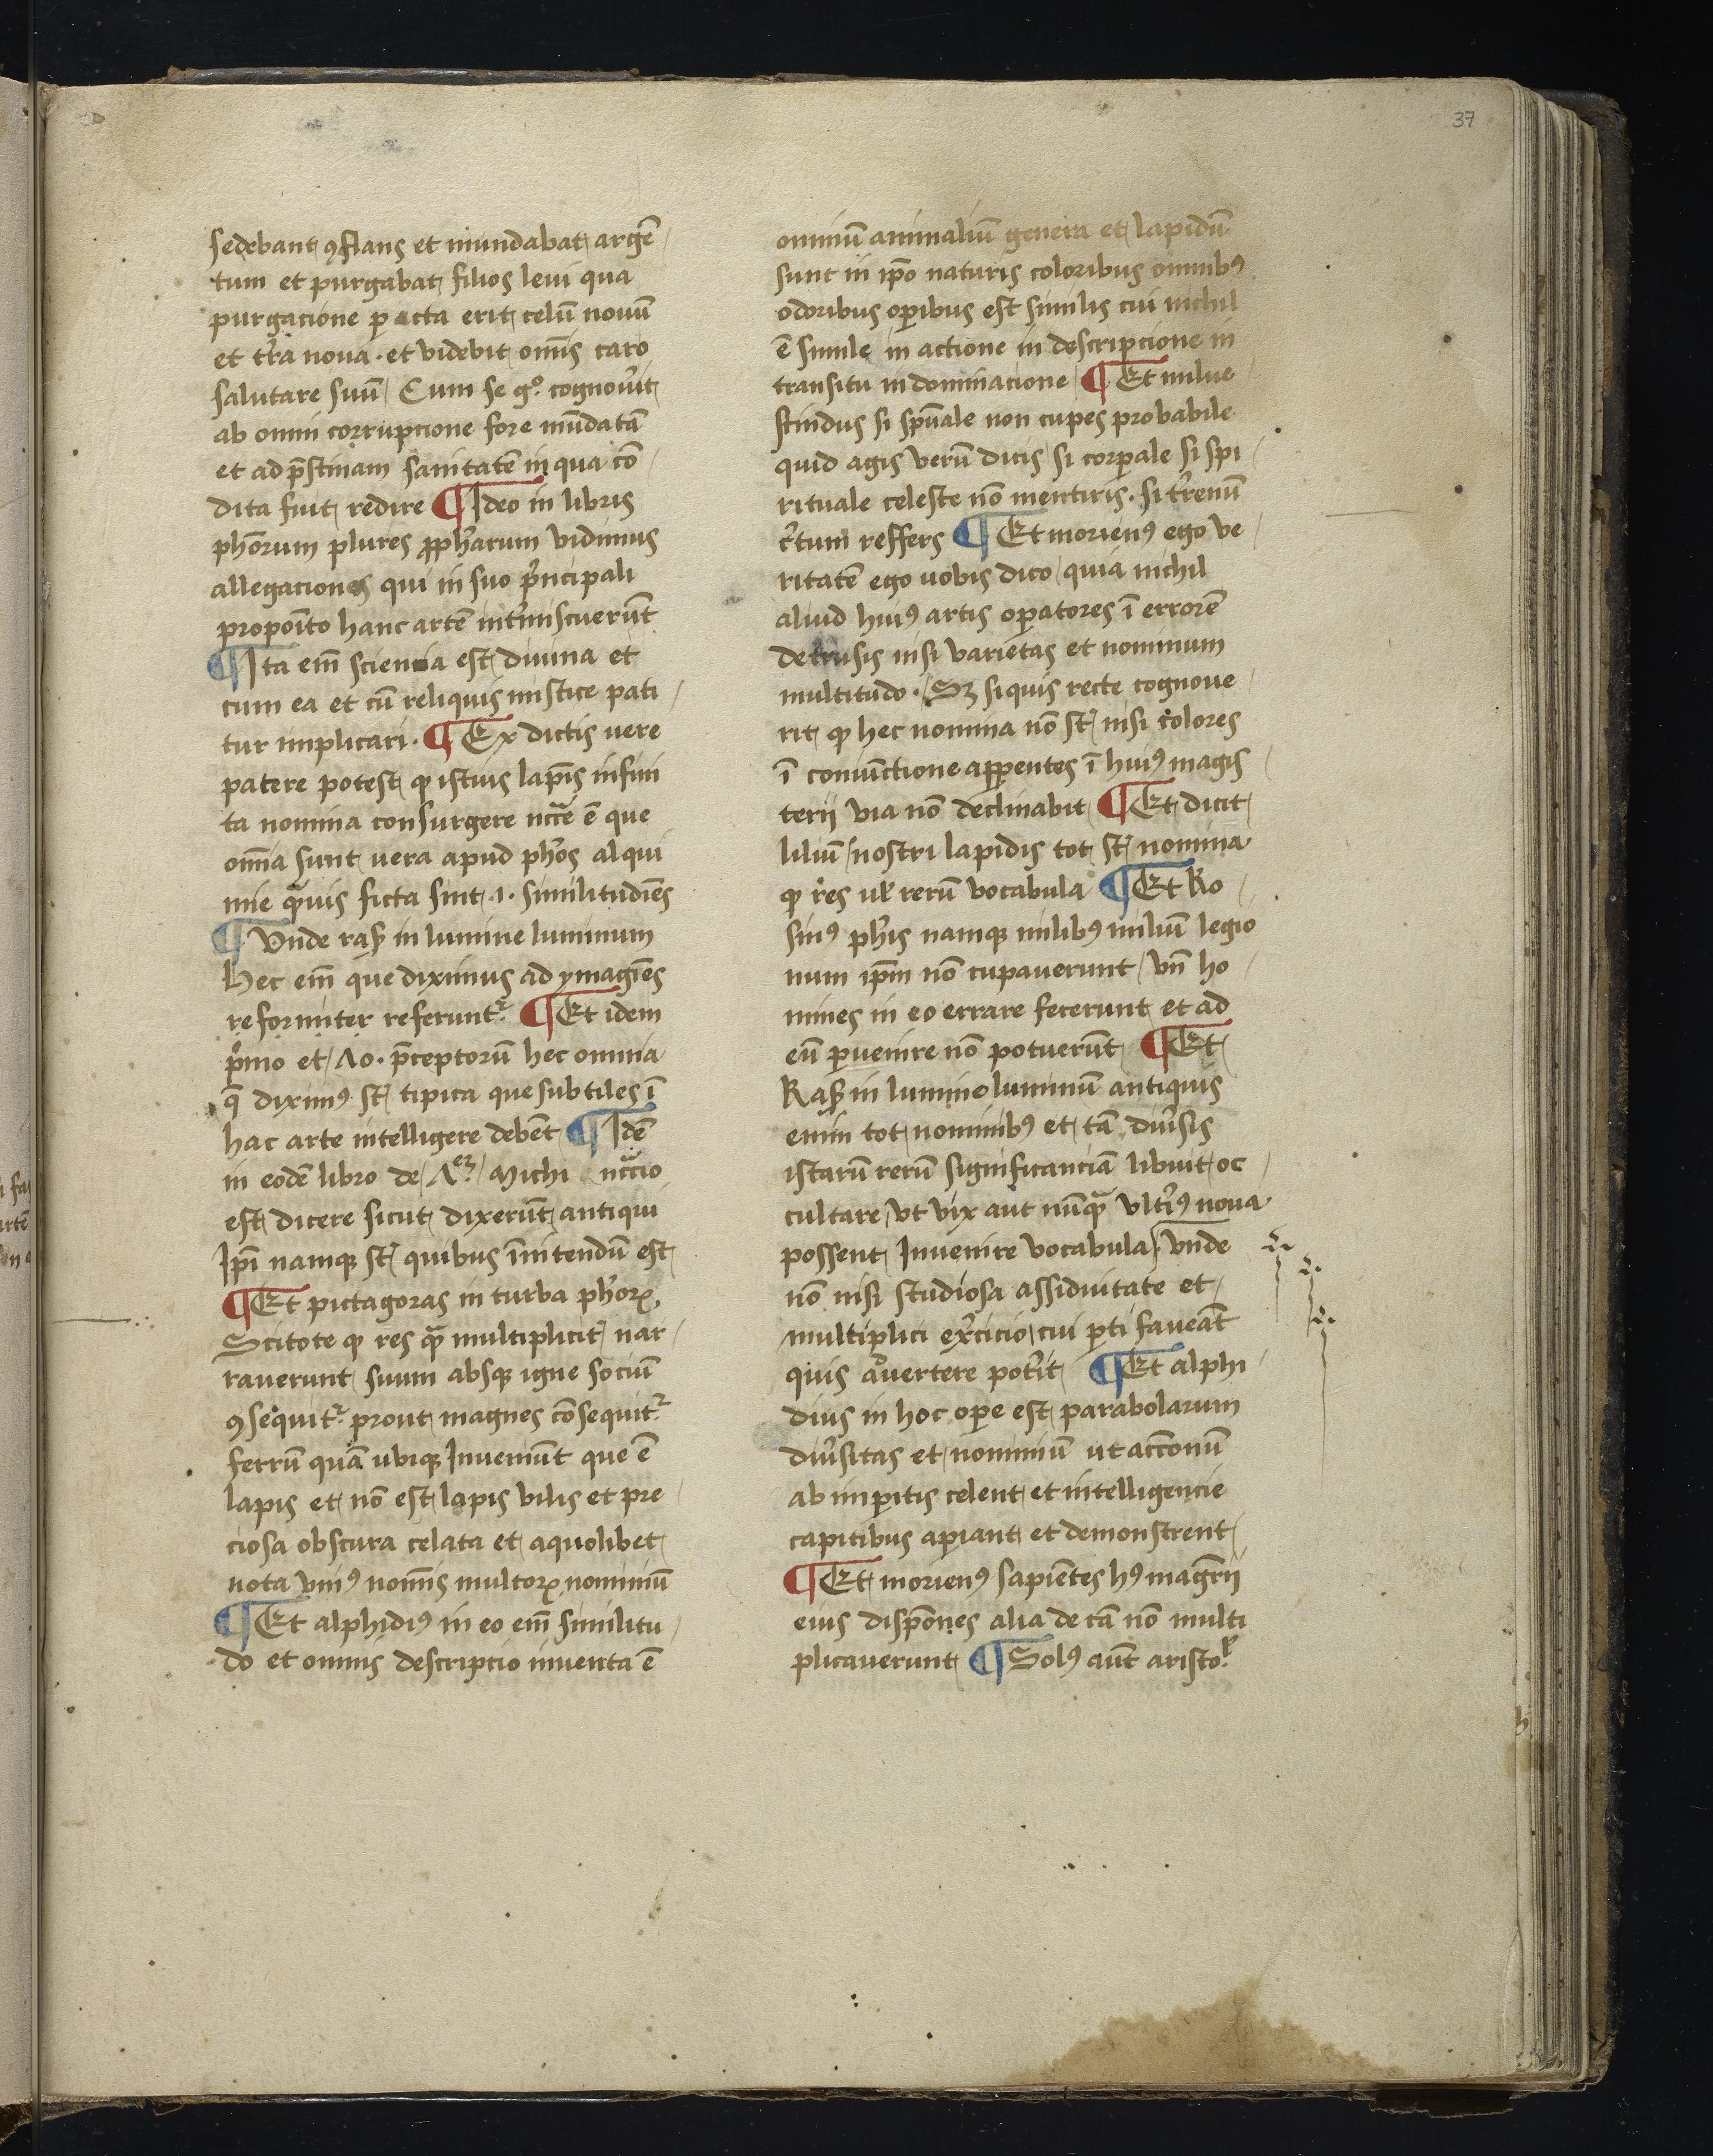 37
sedebant ꝯflans et mundabat argē
tum et purgabat filios leui qua
purgacione peracta erit celū nouū
et tr̄a noua · et videbit om̄is caro
salutare suū Cum se gͦ cognou̓it
ab omni corrupcione fore mūdatā
et ad p̄stinam sanitatē in qua cō
dita fuit redire ¶ Ideo in libris
ph̄orum plures ꝓph̓arum vidimus
allegaciones qui in suo p̓ncipali
propoīto hanc artē int̓miscuerūt
¶ Ita em̄ sciencia est diuina et
cum ea et cū reliquis mistice pati
tur implicari · ¶ Ex dictis uere
patere potest ꝙ istius lap̄is infini
ta nomina consurgere ncc̄e ē que
om̄ia sunt uera apud ph̓os alqui
mie q̄uis ficta sint · 1 · similitudīes
¶ Unde raſ in lumine luminum
Hec em̄ que diximus ad ymagīes
reformiter referuntᷣ ¶ Et idem
p̓mo et Λo · p̄ceptorū hec omnia
q̄ diximꝰ st̄ tipica que subtiles ī
hac arte intelligere debēt ¶ Idē
in eodē libro de Michi
est dicere sicut dixerūt antiqui
Ip̄i namqꝫ st̄ quibus īnitendū est
¶ Et pictagoras in turba ph̓oꝝ
Scitote ꝙ res q̄ multiplicit̓ nar
rauerunt suum absqꝫ igne sociū
ꝯsequitᷣ prout magnes cōsequitᷣ
ferrū quā ubiqꝫ Inueniūt que ē
lapis et nō est lapis vilis et pre
ciosa obscura celata et aquolibet
nota vniꝰ nom̄is multoꝝ nominū
¶ Et alphidiꝰ in eo em̄ similitu
do et omnis descripcio inuenta ē
omniū animaliū genera et lapidū
sunt in ip̄o naturis coloribus omnibꝰ
odoribus oꝑibus est similis cui nichil
ē simile in actione in descripcione in
transitu in dominacione ¶ Et milue
stindus si sp̄uale non cupes probabile
quid agis verū dicis si corꝑale si spi
rituale celeste nō mentiris · si t̓renū
c̓tum reffers ¶ Et morienꝰ ego ve
ritatē ego uobis dico quia nichil
aliud huiꝰ artis oꝑatores ī errorē
detrusis nisi varietas et nominum
multitudo · Sꝫ siquis recte cognoue
rit ꝙ hec nomina nō st̄ nisi colores
ī coniūctione apꝑentes ī huiꝰ magis
terij via nō declinabit ¶ Et dicit
liliū nostri lapidis tot st̄ nomina
ꝙ res ul̓ rerū vocabula ¶ Et Ro
sinꝰ ph̓is namqꝫ milibꝰ miliū legio
num ip̄m nō cupauerunt vn̄ ho
mines in eo errare fecerunt et ad
eū ꝑuenire nō potuerūt ¶ Et
Raſ in lumine luminū antiquis
enim tot nominibꝰ et tā diu̓sis
istarū rerū significanciā libuit oc
cultare vt vix aut nūq̄ ult̓iꝰ noua
possent Inuenire vocabula · vnde
nō nisi studiosa assiduitate et
multiplici ex̓cicio cui ꝑti faueāt
quis aduertere pot̓it ¶ Et alphi
dius in hoc oꝑe est parabolarum
diu̓sitas et nominū ut acc̄onū
ab imꝑitis celent et intelligencie
capitibus aꝑiant et demonstrent
¶ Et morienꝰ sapiētes hꝰ mag̓rij
eius disp̄ones alia de cā nō multi
plicauerunt ¶ Solꝰ aūt aristo